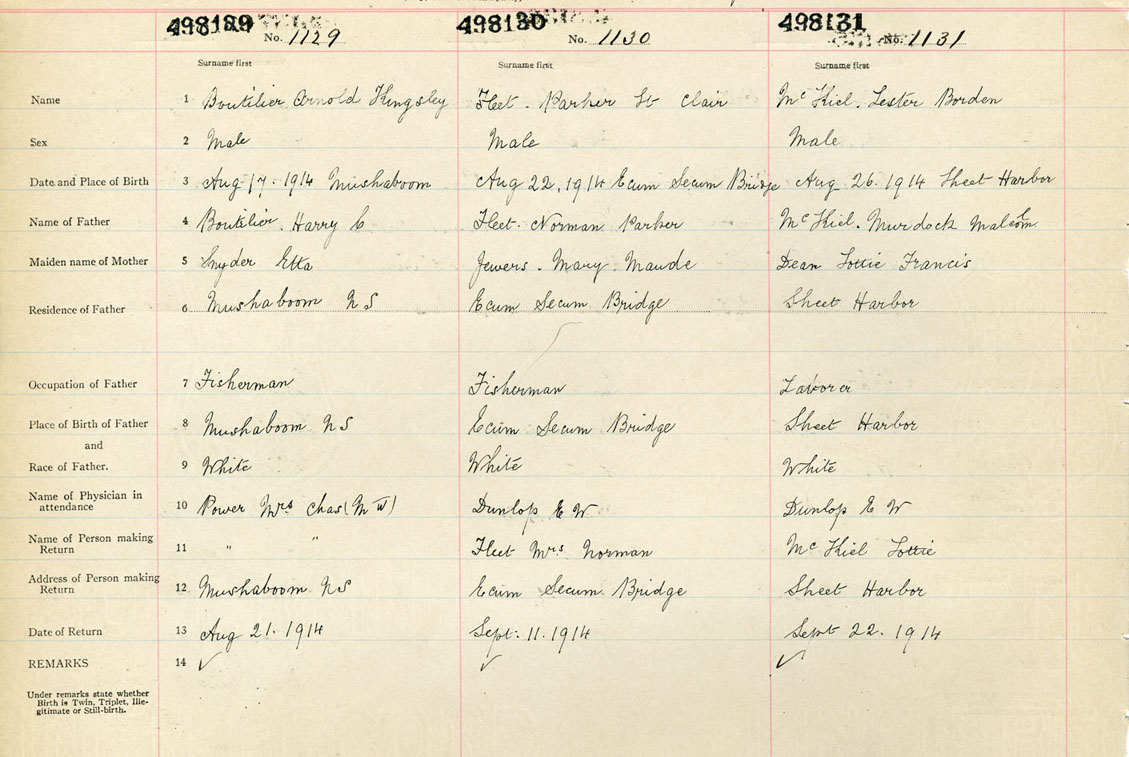 498129 No. 1129 498130 No. 1130 498131 No. 1131
Surname first Surname first Surname first
Name 1 Boutilier Arnold Kingsley Fleet. Parker St Clair McKiel. Lester Borden
Sex 2 Male Male Male
Date and Place of Birth 3 Aug 17. 1914 Mushaboom Aug 22, 1914 Ecum Secum Bridge Aug 26. 1914 Sheet Harbor
Name of Father 4 Boutilier. Harry C Fleet. Norman Parker McKiel. Murdock Malcolm
Maiden name of Mother 5 Snyder Etta Jewers. Mary. Maude Dean Lottie Francis
Residence of Father 6 Mushaboom N S Ecum Secum Bridge Sheet Harbor
Occupation of Father 7 Fisherman Fisherman Laborer
Place of Birth of Father 8 Mushaboom N S Ecum Secum Bridge Sheet Harbor
and
Race of Father. 9 White White White
Name of Physician in
attendance 10 Power Mrs Chas (M W) Dunlop E W Dunlop E W
Name of Person making
Return 11 " " Fleet Mrs Norman McKiel Lottie
Address of Person making
Return 12 Mushaboom N S Ecum Secum. Bridge Sheet Harbor
Date of Return 13 Aug 21. 1914 Sept. 11. 1914 Sept 22. 1914
REMARKS 14 ✓ ✓ ✓
Under remarks state whether
Birth is Twin, Triplet, Ille-
gitimate or Still-birth.